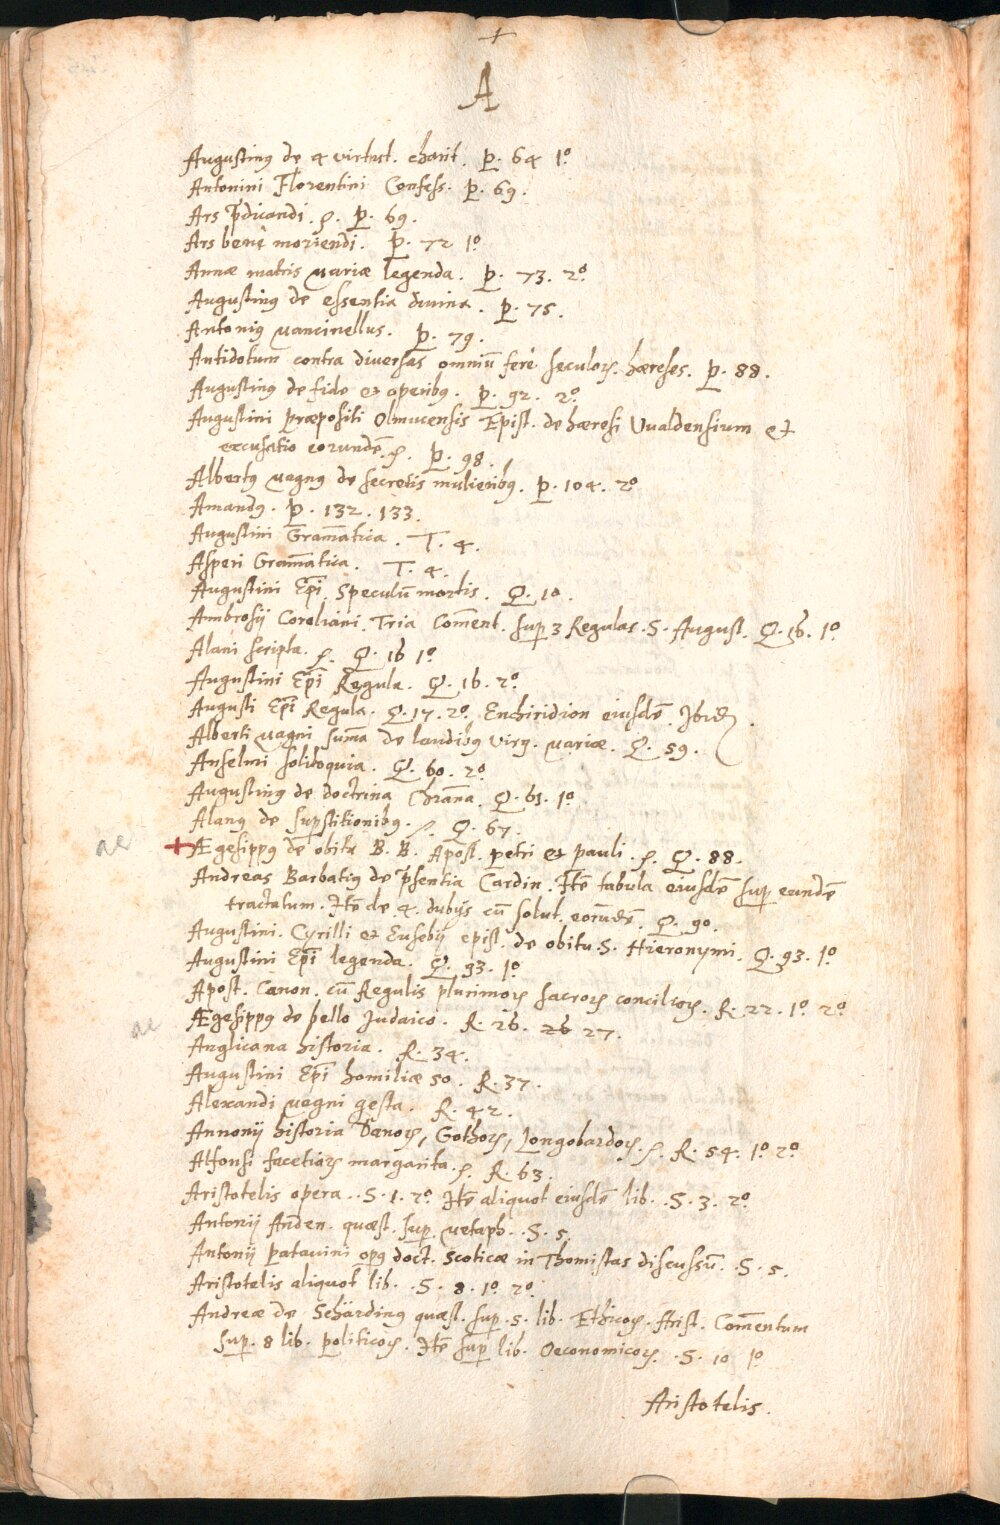 +
A
Augustinꝰ de 4 virtut. charit. P. 64 1º
Antonini Florentini Confess. P. 69.
Ars p̄dicandi. ꝭ. P. 69.
Ars benè moriendi. P. 72 1º
Annæ matris variæ legenda. P. 73. 2º
Augustinꝰ de essentia divina. P. 75.
Antoniꝰ Mancinellus. P. 79.
Antidotum contra diversas omniū ferè seculoꝝ hæreses. P. 88.
Augustinꝰ de fide et operibꝰ. P. 92. 2º
Augustini præpositi Olmucensis Epist. de hæresi Vualdensium et
excusatio eorundē. ꝭ. P. 98.
Albertꝰ Magnꝰ de secretis mulieribꝰ. P. 104. 2º
Amandꝰ. P. 132. 133.
Augustini Gram̄atica. T. 4.
Asperi Gram̄atica. T. 4.
Augustini Ep̄i Speculū mortis. Q. 10.
Ambrosij Coroliani Tria Com̄ent. sup 3 Regulas. S. August. Q. 16. 1º
Alani scripta. ꝭ. Q. 16 1º
Augustini Ep̄i Regula. Q. 16. 2º
Augusti Ep̄i Regula. Q. 17. 2º. Enchiridion eiusdē. Ibid.
Alberti Magni sum̄a de laudibꝰ Virg. Mariæ. Q. 59.
Anselmi soliloquia. Q. 60. 2º
Augustinꝰ de doctrina Chr̄ana. Q. 61. 1º
Alanꝰ de suꝑstitionibꝰ. ꝭ. Q. 67.
ae + Ægesippꝰ de obitu B. B. Apost. Petri et Pauli. ꝭ. Q. 88.
Andreas Barbatiꝰ de p̄sentia Cardin. Itē tabula eiusdē sup eundē
tractatum. Itē de 4. dubijs cū solut. eorūdē. Q. 90.
Augustini. Cyrilli et Eusebij epist. de obitu. S. Hieronymi. Q. 93. 1º
Augustini Ep̄i legenda. Q. 93. 1º
Apost. Canon. cū Regulis plurimoꝝ sacroꝝ concilioꝝ. R. 22. 1º 2º
ae Ægesippꝰ de bello Judaico. R. 26. 26 27.
Anglicana historia. R. 34.
Augustini Ep̄i homiliæ 50. R. 37.
Alexandi Magni gesta. R. 42.
Annonij historia Danoꝝ, Gothoꝝ, Longobardoꝝ. ꝭ. R. 54. 1º 2º
Alfonsi facetiaꝝ margarita. ꝭ. R. 63.
Aristotelis opera. S. 1. 2º Itē aliquot eiusdē lib. S. 3. 2º
Antonij Anden. quæst. sup. Metaph. S. 5.
Antonij Patavini opꝰ doct. Scoticæ in Thomistas discussū. S. 5.
Aristotelis aliquot lib. S. 8. 1º 2º
Andreæ de Schärdinꝰ quæst. sup. 5. lib. Ethicoꝝ. Arist. Com̄entum
sup. 8 lib. politicoꝝ. Itē sup lib. Oeconomicoꝝ. S. 10 1º
Aristotelis.